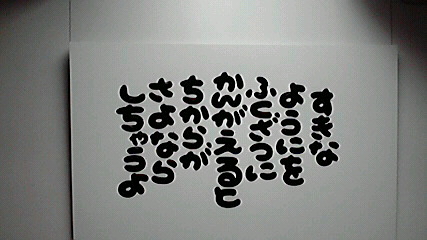 すきな
ようにを
ふくざつに
かんがえると
ちからが
さよなら
しちゃうよ